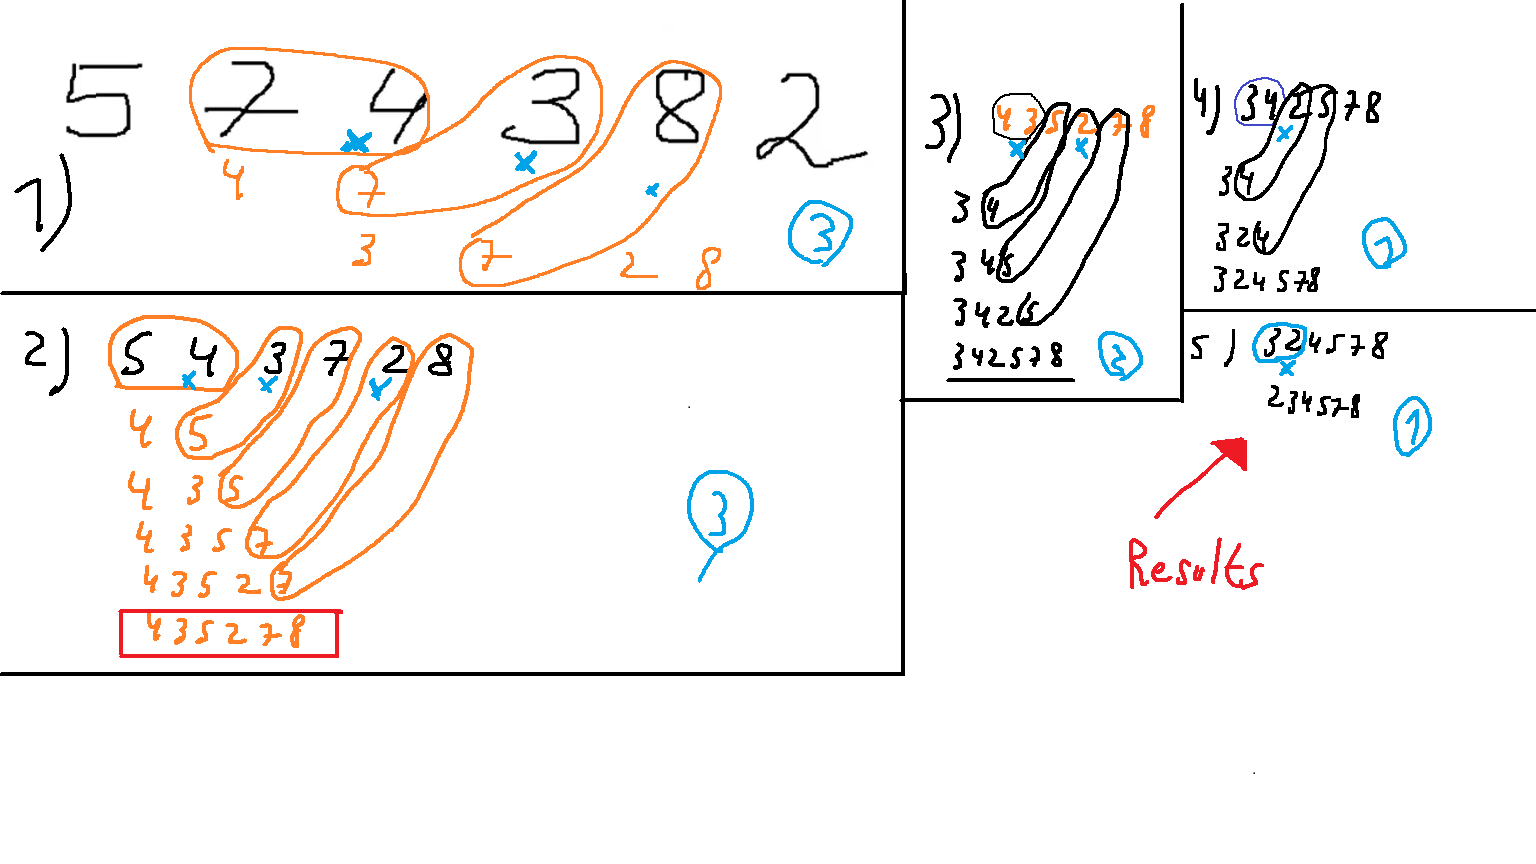 5 7 4 3 8 2
1)
4 7
3 7 2 8
3
2) 5 4 3 7 2 8
4 5
4 3 5
4 3 5 7
4 3 5 2 7
4 3 5 2 7 8
3
3) 4 3 5 2 7 8
3 4
3 4 5
3 4 2 5
3 4 2 5 7 8
4) 3 4 2 5 7 8
3 4
3 2 4
3 2 4 5 7 8
5) 3 2 4 5 7 8
2 3 4 5 7 8
1
Results